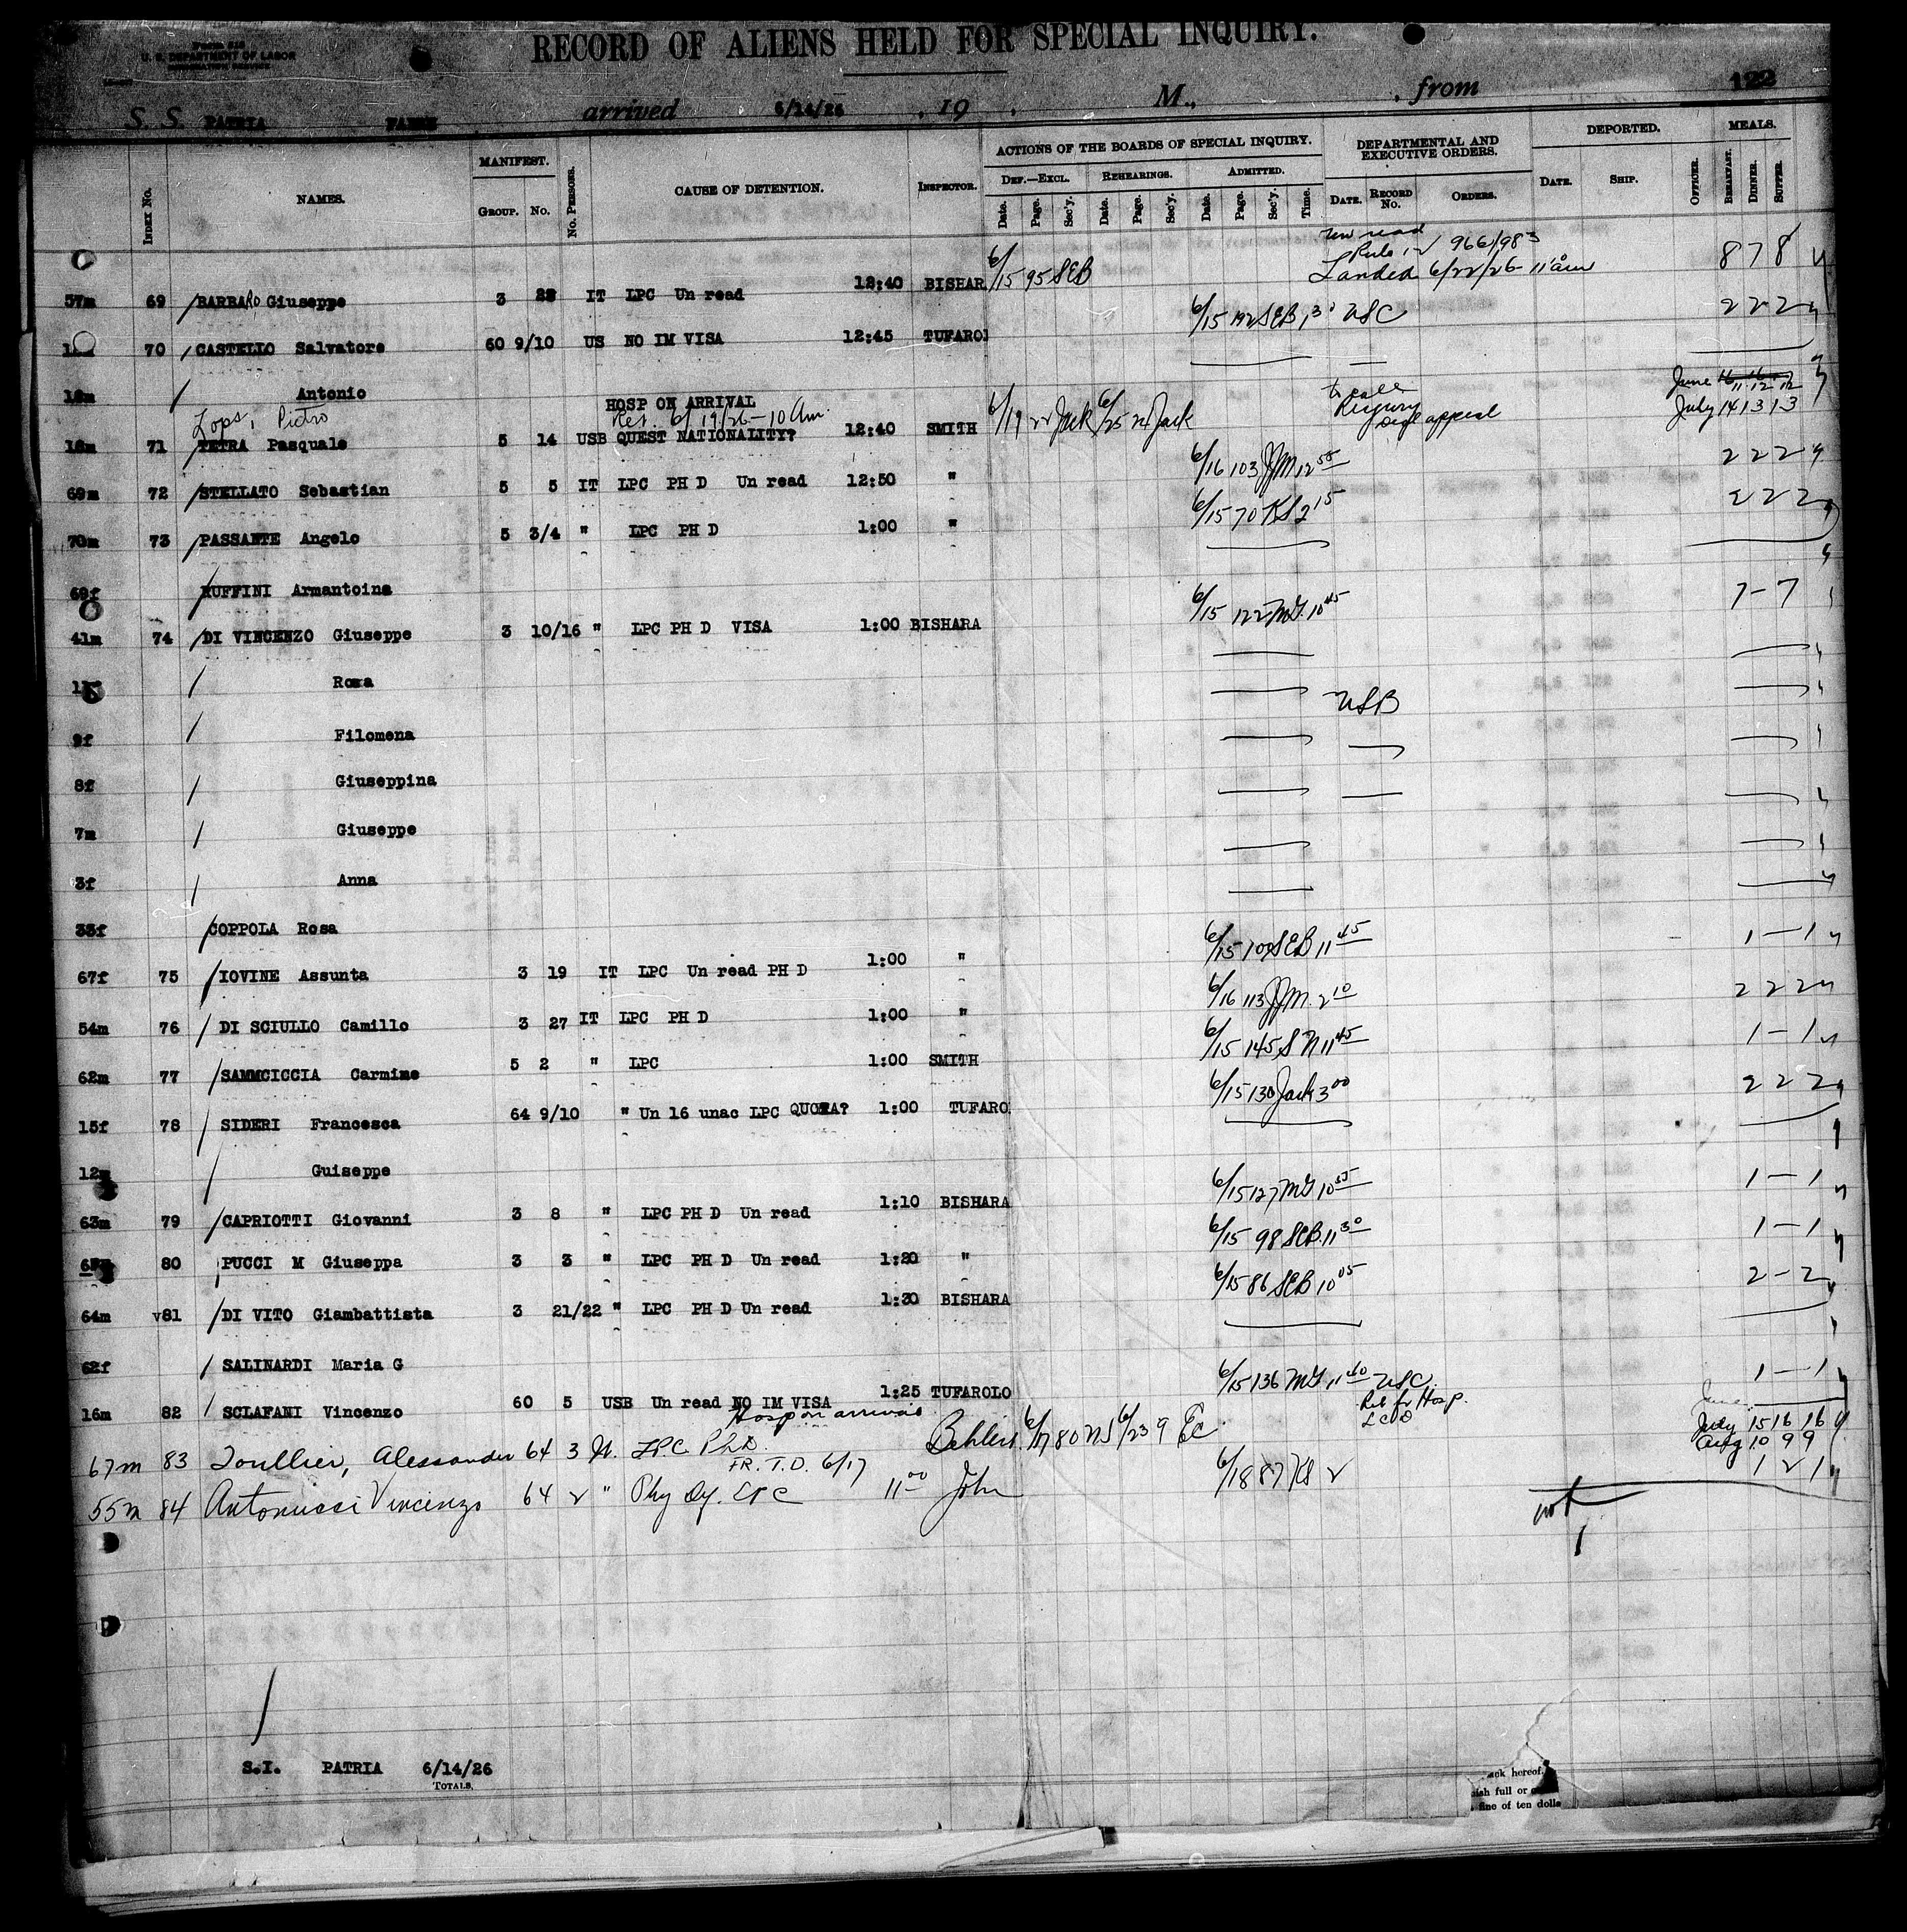 Form 518
U. S. DEPARTMENT OF LABOR
RECORD OF ALIENS HELD FOR SPECIAL INQUIRY.
122
S. S. PATRIA arrived 6/14/26 , 19 . M., , from
Index No. NAMES. MANIFEST. GROUP. No. No. PERSONS. CAUSE OF DETENTION. INSPECTOR. ACTIONS OF THE BOARDS OF SPECIAL INQUIRY. DEF.—EXCL. Date. Page. Sec'y. REHEARINGS. Date. Page. Sec'y. ADMITTED. Date. Page. Sec'y. Time. DEPARTMENTAL AND EXECUTIVE ORDERS. DATE. RECORD No. ORDERS. DEPORTED. DATE. SHIP. OFFICER. MEALS. BREAKFAST. DINNER. SUPPER.
Un read
966/983
57m 69 BARBARO Giuseppe 3 IT LPC Un read 12:40 BISHAR 6/15 95 SEB Landed 6/22/26 11 am 8 7 8
70 CASTELLO Salvatore 60 9/10 US NO IM VISA 12:45 TUFAROl 6/15 192 SEB USC 2 2 2
Antonio
HOSP ON ARRIVAL June
Lops, Pietro Rel. 6/19/26-10 Am. July 14 13 13
18m 71 TETRA Pasquale 5 14 USB QUEST NATIONALITY? 12:40 SMITH 6/19 22 Jack 6/25 24 Jack appeal
69m 72 STELLATO Sebastian 5 5 IT LPC PH D Un read 12:50 " 6/16 103 JJM 12 55 2 2 2
70m 73 PASSANTE Angelo 5 3/4 " LPC PH D 1:00 " 6/15 70 KS 2 15 2 2 2
69f RUFFINI Armantoina
41m 74 DI VINCENZO Giuseppe 3 10/16 " LPC PH D VISA 1:00 BISHARA 6/15 122 MG 10 45 7 - 7
Rosa
9f Filomena USB
8f Giuseppina
7m Giuseppe
3f Anna
33f COPPOLA Rosa
67f 75 IOVINE Assunta 3 19 IT LPC Un read PH D 1:00 " 6/15 SEB 11 45 1 - 1
54m 76 DI SCIULLO Camillo 3 27 IT LPC PH D 1:00 " 6/16 113 JJM 2 10 2 2 2
62m 77 SAMMCICCIA Carmine 5 2 " LPC 1:00 SMITH 6/15 145 SN 11 45 1 - 1
15f 78 SIDERI Francesca 64 9/10 " Un 16 unac LPC QUOTA? 1:00 TUFARO 6/15 130 Jack 3 00 2 2 2
12m Guiseppe
63m 79 CAPRIOTTI Giovanni 3 8 " LPC PH D Un read 1:10 BISHARA 6/15 127 MG 10 55 1 - 1
80 PUCCI M Giuseppa 3 3 " LPC PH D Un read 1:20 " 6/15 98 SEB 11 30 1 - 1
64m v81 DI VITO Giambattista 3 21/22 " LPC PH D Un read 1:30 BISHARA 6/15 86 SEB 10 05 2 - 2
62f SALINARDI Maria G
16m 82 SCLAFANI Vincenzo 60 5 USB Un read NO IM VISA 1:25 TUFAROLO 6/15 136 MG 11 40 USC 1 - 1
Hosp on arrival Hosp. June
67m 83 Alessander 64 3 It. LPC Ph.D. 6/17 80 6/23 9 July 15 16 16
FR. T.D. 6/17 Aug 10 9 9
55m 84 Antonucci Vincenzo 64 2 " Phy Df. LPC 11 00 John 6/18 87 KS 2 1 2 1
S.I. PATRIA 6/14/26
TOTALS.
ack hereof.
ish full or
fine of ten dolla